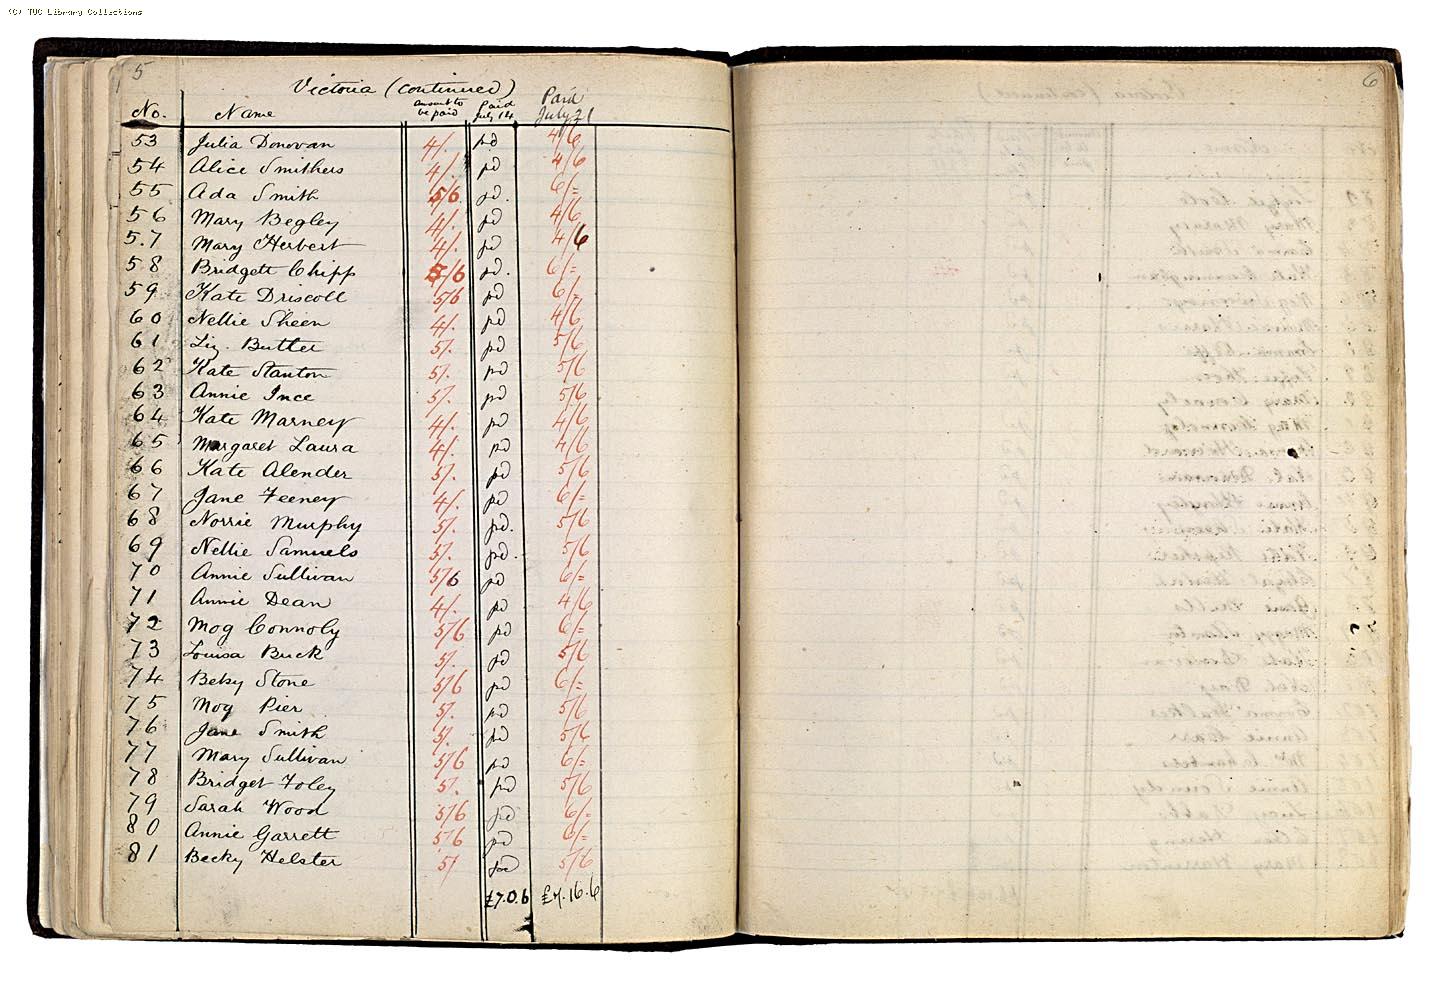 (C) TUC Library Collections
5
Victoria (continued)
No. Name amount to be paid Paid July 14 Paid July 21
53 Julia Donovan 4/. pd 4/6
54 Alice Smithers 4/. pd 4/6
55 Ada Smith 5/6 pd. 6/=
56 Mary Begley 4/. pd 4/6
57 Mary Herbert 4/. pd 4/6
58 Bridgett Chipp 5/6 pd. 6/=
59 Kate Driscoll 5/6 pd 6/=
60 Nellie Sheen 4/. pd 4/6
61 Liz. Butler 5/. pd 5/6
62 Kate Stanton 5/. pd 5/6
63 Annie Ince 5/. pd 5/6
64 Kate Marney 4/. pd 4/6
65 Margaret Laura 4/. pd 4/6
66 Kate Alender 5/. pd 5/6
67 Jane Feeney 4/. pd 6/=
68 Norrie Murphy 5/. pd. 5/6
69 Nellie Samuels 5/. pd. 5/6
70 Annie Sullivan 5/6 pd 6/=
71 Annie Dean 4/. pd 4/6
72 Mog Connoly 5/6 pd 6/=
73 Louisa Buck 5/. pd 5/6
74 Beky Stone 5/6 pd 6/=
75 Mog Pier 5/. pd 5/6
76 Jane Smith 5/. pd 5/6
77 Mary Sullivan 5/6 pd 6/=
78 Bridget Foley 5/. pd 5/6
79 Sarah Wood 5/6 pd 6/=
80 Annie Garrett 5/6 pd 6/=
81 Becky Helster 5/ pd 5/6
£7.0.6 £7.16.6
6